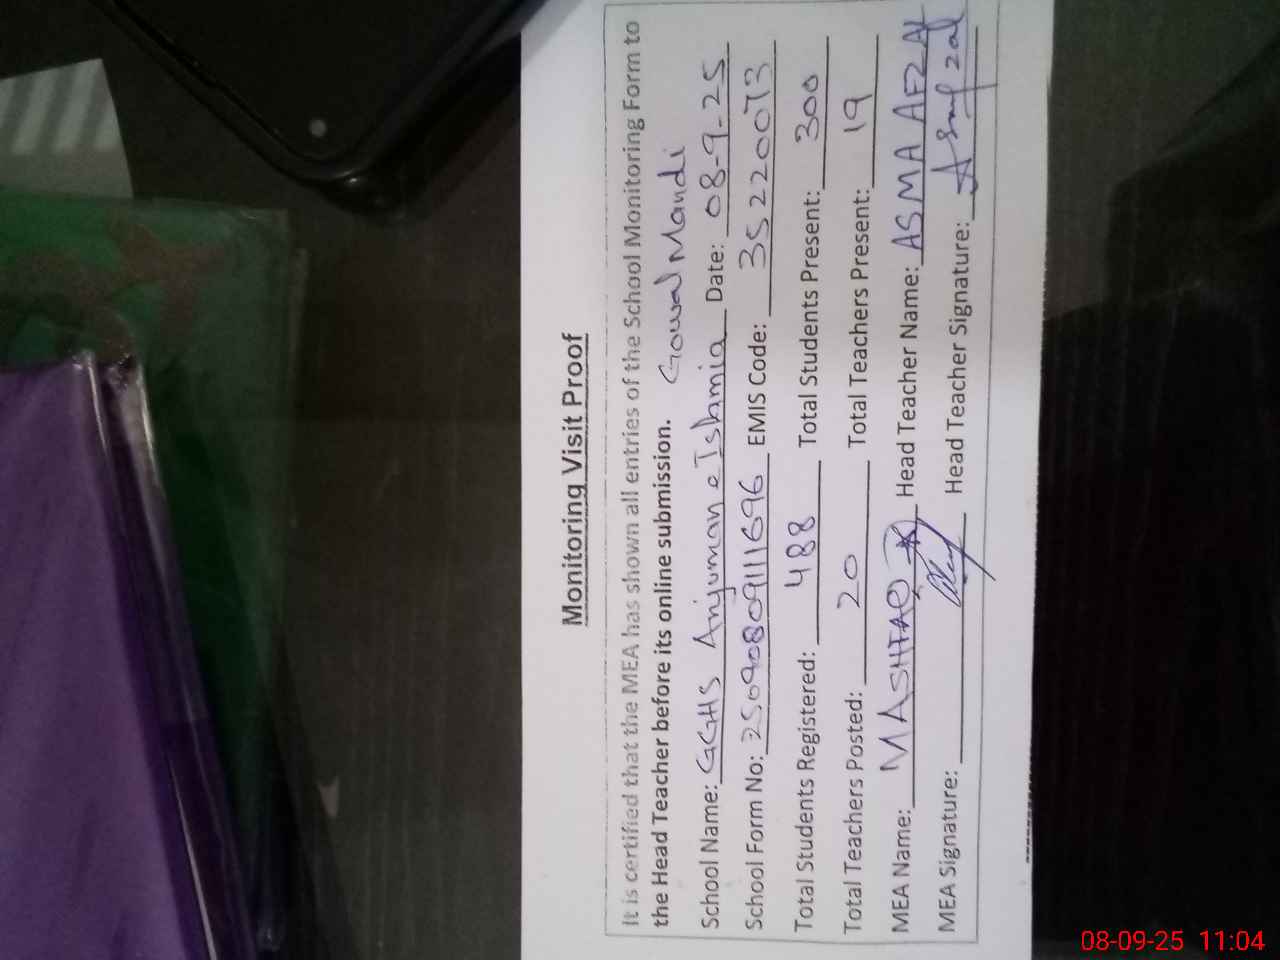 Monitoring Visit Proof
It is certified that the MEA has shown all entries of the School Monitoring Form to
the Head Teacher before its online submission. Gowal Mandi
School Name: GGHS Anjuman e Islamia Date: 08-9-25
School Form No: 25090809111696 EMIS Code: 35220073
Total Students Registered: 488 Total Students Present: 300
Total Teachers Posted: 20 Total Teachers Present: 19
MEA Name: MASHFAQ Head Teacher Name: ASMA AFZAL
MEA Signature: Head Teacher Signature: Asmafzal
08-09-25 11:04